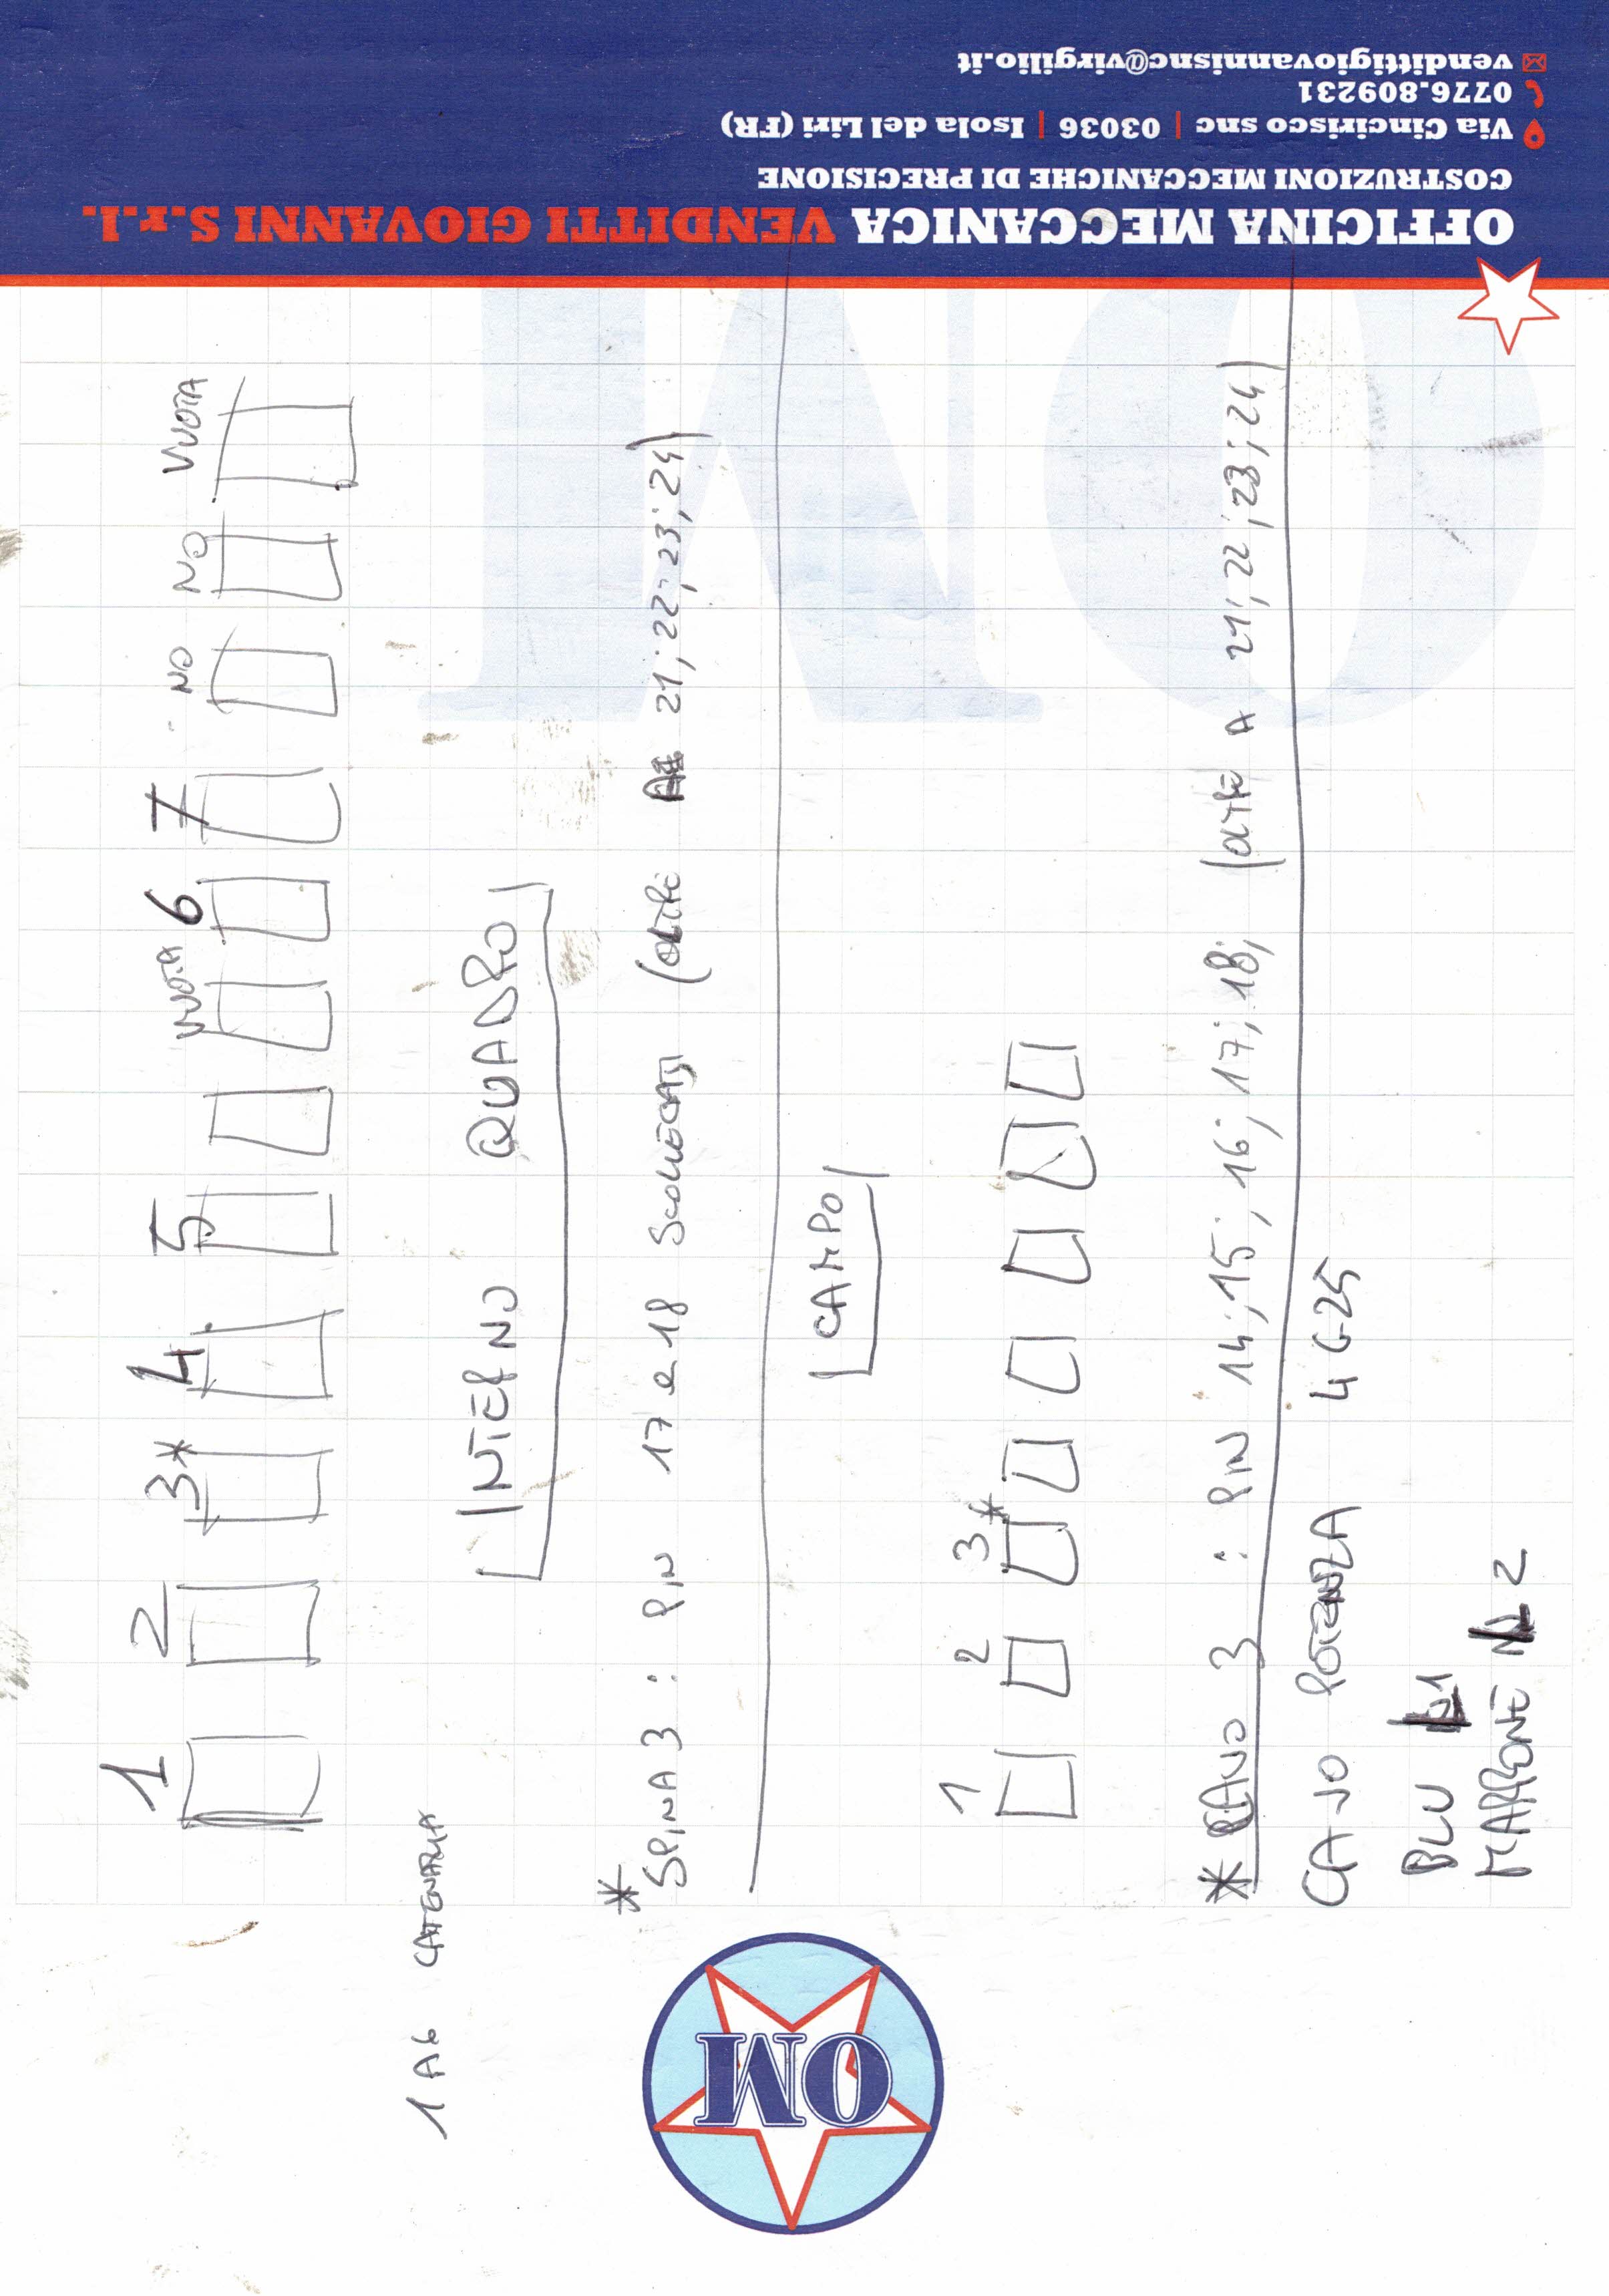 OFFICINA MECCANICA VENDITTI GIOVANNI S.r.l.
COSTRUZIONI MECCANICHE DI PRECISIONE
Via Cincirisco snc | 03036 | Isola del Liri (FR)
0776.809231
vendittigiovannisnc@virgilio.it
OM
OM
1 2 3* 4 5 VUOTA 6 7 NO NO VUOTA
1 A6 CATENARIA
INTERNO QUADRO
*
SPINA 3 : PIN 17 e 18 SCOLLEGATI (oltre A 21; 22; 23; 24)
CAMPO
1 2 3*
* CAVO 3 : PIN 14; 15; 16; 17; 18; (oltre A 21; 22; 23; 24)
CAVO POTENZA 4G25
BLU L1
MARRONE 2